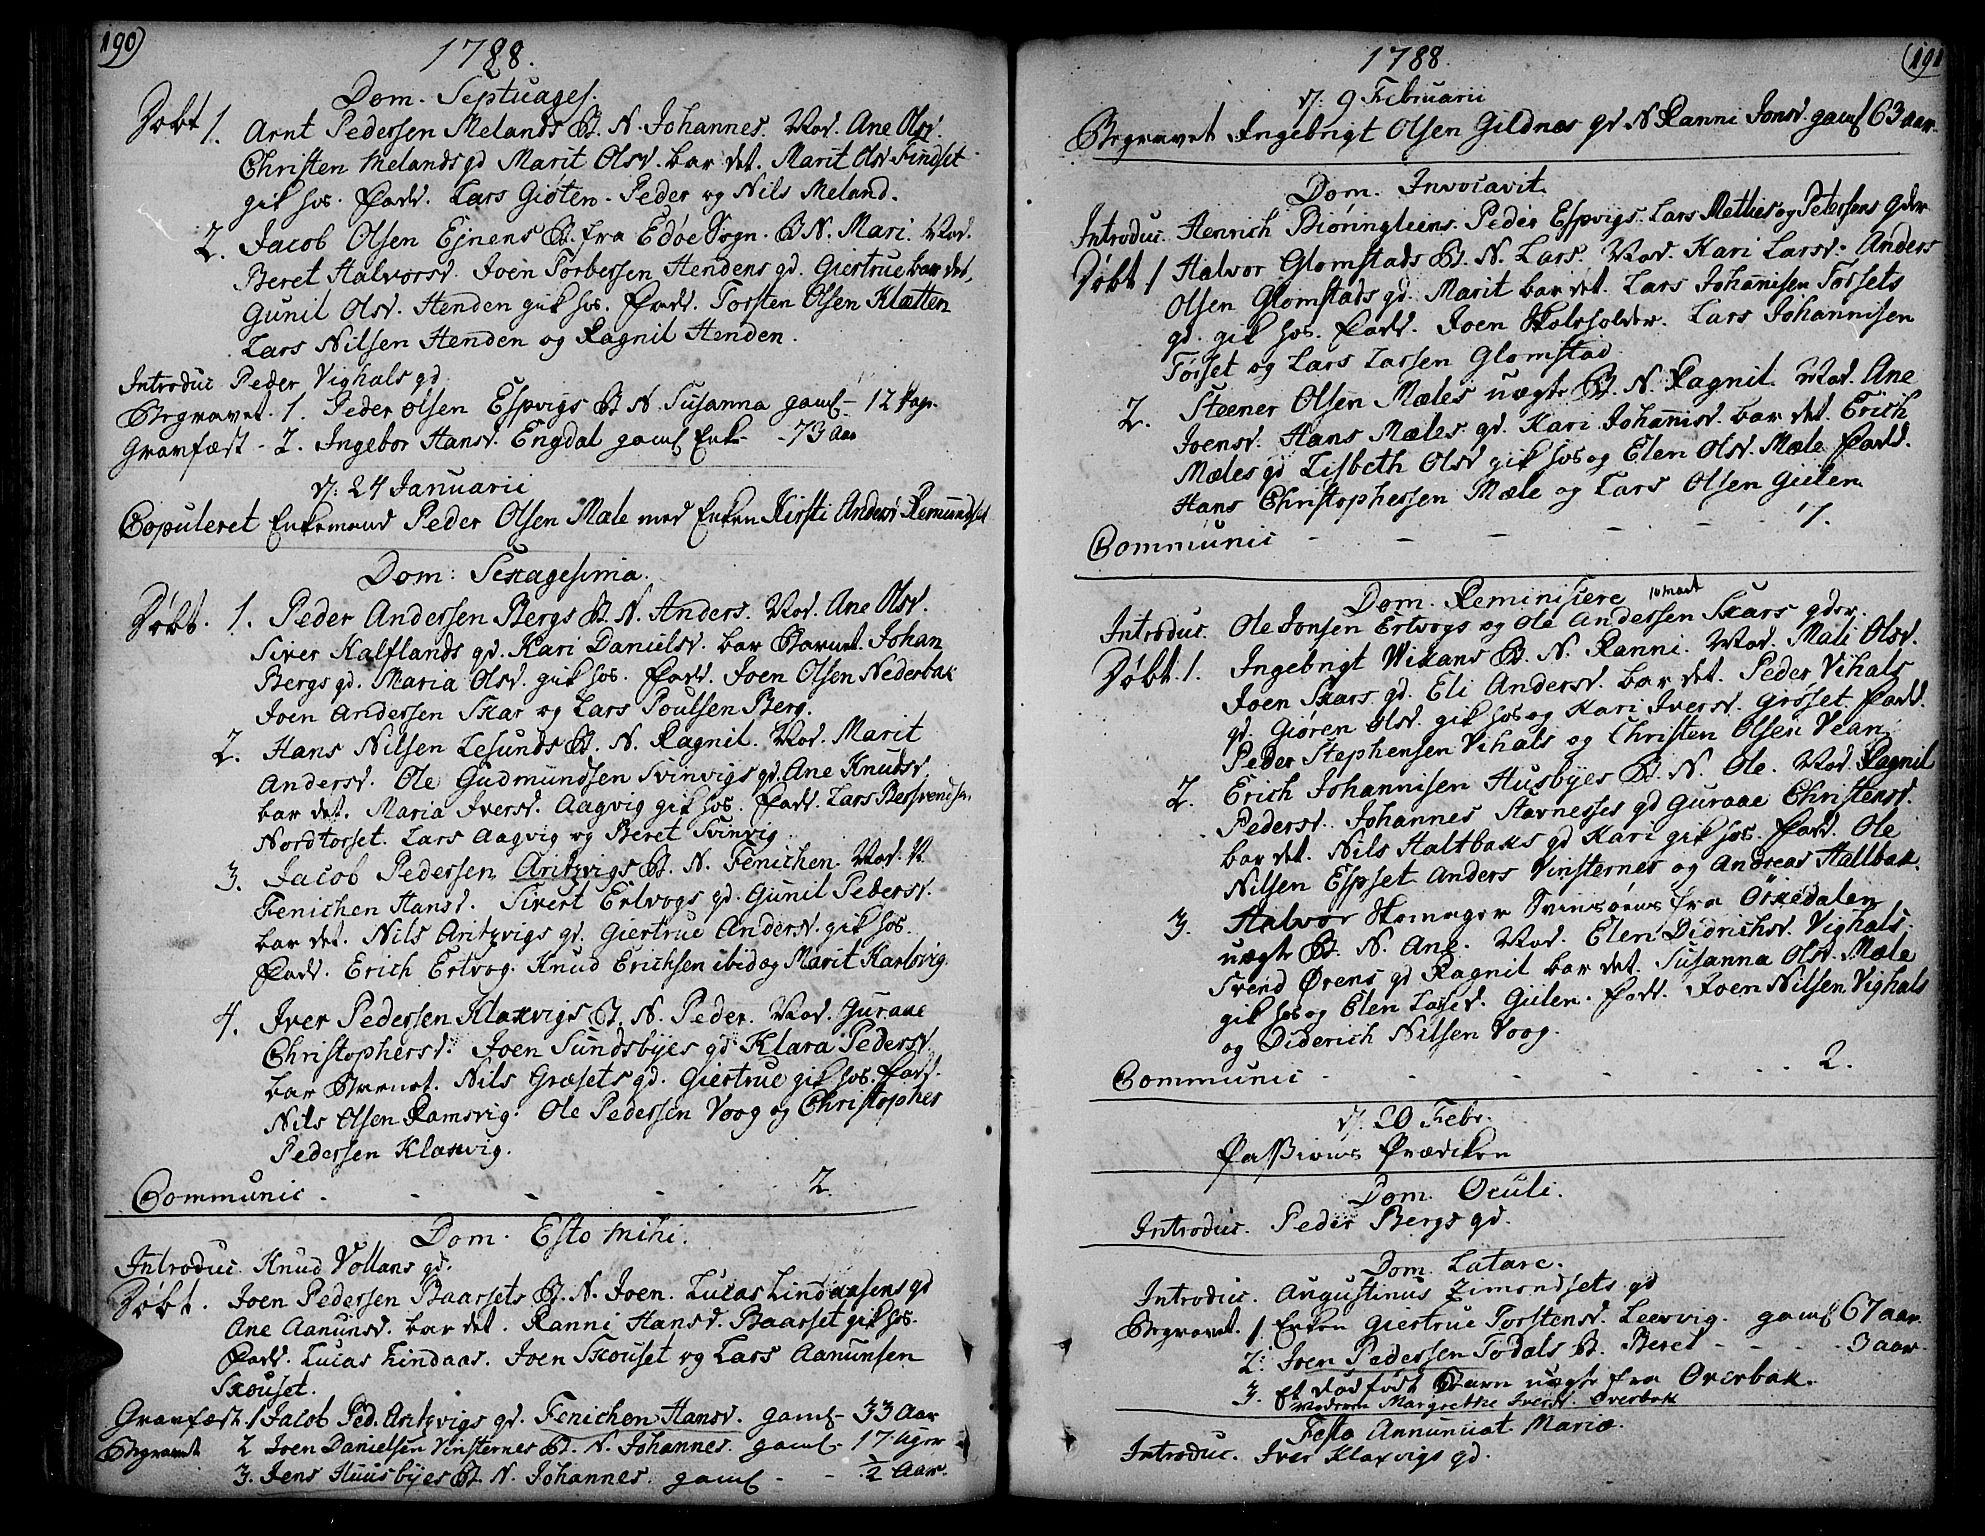 190)
1788.
Dom. Septuages.
Døbt 1. Arnt Pedersen Melands B. N. Johannes. Mod. Ane Olsd.
Christen Melands gd Marit Olsd. bar det. Marit Olsd Findset
gik hos. Fadd. Lars Giøten. Peder og Nils Meland.
2. Jacob Olsen Ejnens B. fra Edøe Sogn. B N. Mari. Mod.
Beret Halvorsd. Joen Torbersen Hendens gd. Giertrue bar det,
Gunil Olsd. Henden gik hos. Fadd. Torsten Olsen Klætten
Lars Nilsen Henden og Ragnil Henden.
Introduc Peder Vighals gd
Begravet. 1. Peder Olsen Espvigs B N. Susanna gaml - 12 Dage.
Gravfæst - 2. Ingebor Hansd. Engdal gaml Enke - 73 Aar
d: 24 Januarii
Copuleret Enkemand Peder Olsen Mæle med Enken Kirsti Andersd Remundset
Dom: Sexagesima.
Døbt. 1. Peder Andersen Bergs B. N. Anders. Mod. Ane Olsd.
Siver Kalflands gd. Kari Danielsd. bar Barnet. Johan
Bergs gd. Maria Olsd. gik hos. Fadd. Joen Olsen Nederbak
Joen Andersen Skar og Lars Poulsen Berg.
2. Hans Nilsen Lesunds B. N. Ragnil. Mod. Marit
Andersd. Ole Gudmundsen Svinvigs gd. Ane Knudsd
bar det. Maria Iversd. Aagvig gik hos. Fadd. Lars Bersvendsn.
Nordtorset. Lars Aagvig og Beret Svinvig.
3. Jacob Pedersen Aritzvigs B. N. Fenichen. Mod. N.
Fenichen Hansd. Sivert Ertvogs gd. Gunil Pedersd.
bar det. Nils Aritzvigs gd. Giertrue Andersd. gik hos.
Fadd. Erich Ertvog. Knud Erichsen ibid og Marit Karlsvig.
4. Iver Pedersen Klaxvigs B. N. Peder. Mod. Guraae
Christophersd. Joen Sundsbyes gd Klara Pedersd.
bar Barnet. Nils Græsets gd. Giertrue gik hos. Fadd.
Nils Olsen Ramsvig. Ole Pedersen Voog og Christopher
Pedersen Klaxvig.
Communic - - - - 2.
Dom. Esto mihi.
Introduc. Knud Vollans gd.
Døbt. Joen Pedersen Baarsets B. N. Joen. Lucas Lindaasens gd
Ane Aanunsd. bar det. Ranni Hansd. Baarset gik hos.
Fadd. Lucas Lindaas. Joen Skouset og Lars Aanunsen
Skouset.
Gravfæst. 1 Jacob Ped. Aritzvigs gd. Fenichen Hansd. gaml - 33 Aar
Begravet 2 Joen Danielsen Vinsternes B. N. Johannes. gaml - 17 Uger
3. Jens Huusbyes B. N. Johannes. gaml - - ½ Aar.
191
1788.
d: 9 Februarii
Begravet Ingebrigt Olsen Gildnes gd N Ranni Jonsd. gaml 63 aar.
Dom. Invocavit.
Introduc. Henrich Biøringleens. Peder Espvigs. Lars Methes og Petersens gder
Døbt 1 Halvor Glomstads B. N. Lars. Mod. Kari Larsd. Anders
Olsen Glomstads gd. Marit bar det. Lars Johannisen Torsets
gd. gik hos. Fadd. Joen Skoleholder. Lars Johannisen
Torset og Lars Larsen Glomstad
2. Steener Olsen Mæles uægte B. N. Ragnil. Mod. Ane
Joensd. Hans Mæles gd. Kari Johannisd. bar det. Erich
Mæles gd Lisbeth Olsd gik hos og Elen Olsd. Mæle. Fadd.
Hans Christophersen Mæle og Lars Olsen Gielen
Communic - - - - - - 7.
Dom. Reminisiere
Introduc. Ole Jonsen Ertvogs og Ole Andersen Skars gder.
Døbt. 1. Ingebrigt Wikans B. N. Ranni. Mod. Mali Olsd.
Joen Skars gd. Eli Andersd. bar det. Peder Vihals
gd. Giøren Olsd. gik hos og Kari Iversd. Grøset. Fadd.
Peder Stephensen Vihals og Christen Olsen Vean
2. Erich Johannisen Husbyes B. N. Ole. Mod. Ragnil
Pedersd. Johannes Stavnesses gd Guraae Christensd.
bar det. Nils Haltbaks gd Kari gik hos. Fadd. Ole
Nilsen Espset. Anders Vinsternes og Andreas Hallbak.
3. Halvor Skomager Svinsøens fra Orkedalen
uægte B. N. Ane. Mod. Elen Didrichsd. Vighals.
Svend Ørens gd Ragnil bar det. Susanna Olsd. Mæle
gik hos og Elen Larsd. Gielen. Fadd. Joen Nilsen Vighals
og Diderich Nilsen Voog.
Communic - - - - - 2.
d. 20 Febr.
Passions Prædiken
Dom. Oculi.
Introduc. Peder Bergs gd.
Dom. Lætare.
Introduc. Augustinus Zimondsets gd
Begravet. 1. Enken Giertrue Torstensd. Leervig. gaml 67 aar.
2. Joen Pedersen Todals B. Beret - - - - 3 aar.
3. Et dødfødt Barn uægte fra Overbak.
Moderen Margrethe Iversd. Overbak
Festo Annunciat. Mariæ.
Introduc. Iver Klaxvigs gd.